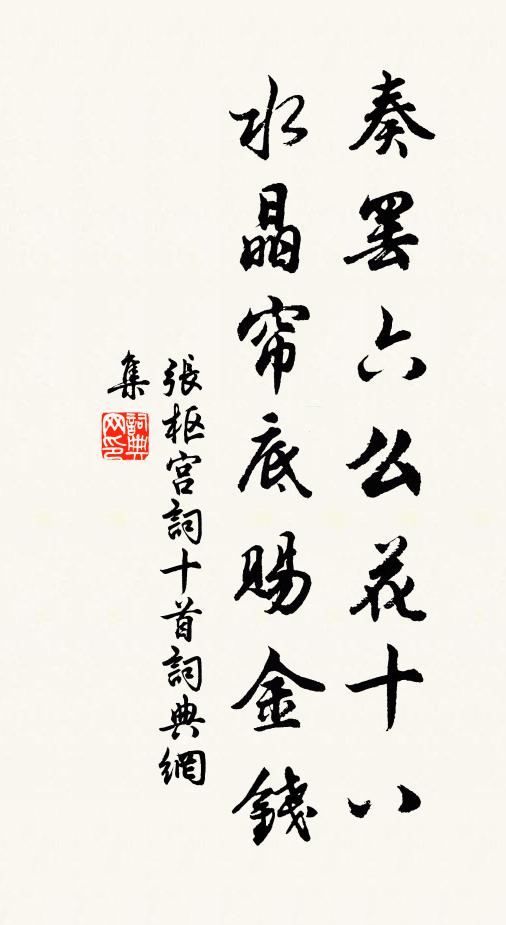 奏罢六幺花十八
水晶帘底賜金錢
張枢宫詞十首詞典網
集
詞典
网印